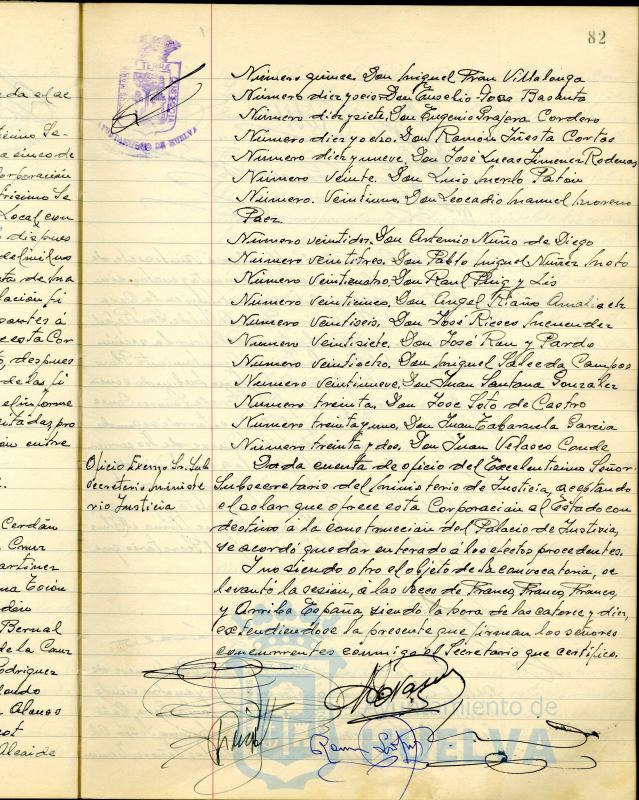 82
AYUNTAMIENTO DE HUELVA
Número quince. Don Miguel Pran Villalonga
Número diez y seis. Don Eusebio Basanta
Número diez y siete. Don Eugenio Prajera Cordero
Número diez y ocho. Don Ramón Iñesta Cortas
Número diez y nueve. Don José Lucas Jimenez Rodenas
Número veinte. Don Luis Merlo Patón
Número. Veintiuno. Don Leocadio Manuel Moreno
Paez.
Número veintidos. Don Artemio Nuño de Diego
Número veintitres. Don Pablo Miguel Nuñez Moto
Número veinticuatro. Don Raul Puig y Lis
Número veinticinco. Don Angel Riaño
Número veintiseis. Don José Riesco Menendez
Número veintisiete. Don José Rau y Pardo
Número veintiocho. Don Miguel Salceda Campos
Número veintinueve. Don Juan Santana Gonzalez
Número treinta. Don Jose Soto de Castro
Número treinta y uno. Don Juan Tabaruela Garcia
Número treinta y dos. Don Juan Velasco Conde
Oficio Excmo Sr. Sub
secretario ministe
rio Justicia
Dada cuenta de oficio del Excelentisimo Señor
Subsecretario del ministerio de Justicia, aceptando
el solar que ofrece esta Corporación al Estado con
destino á la construccion del Palacio de Justicia,
se acordó quedar enterado a los efectos procedentes.
Y no siendo otro el objeto de la convocatoria, se
levantó la sesión, a las voces de Franco, Franco, Franco,
y Arriba España, siendo la hora de las catorce y diez,
extendiéndose la presente que firman los señores
concurrentes conmigo el Secretario que certifico.
Ayuntamiento de
HUELVA
da el ac
a cinco de
Corporación
Local, con
despues
ta de ma
santes á
esta Cor
despues
de las fi
el informe
pro
ón entre
Cerdán
Cruz
Martinez
Bernal
de la Cruz
Rodriguez
Alonso
Alcaide